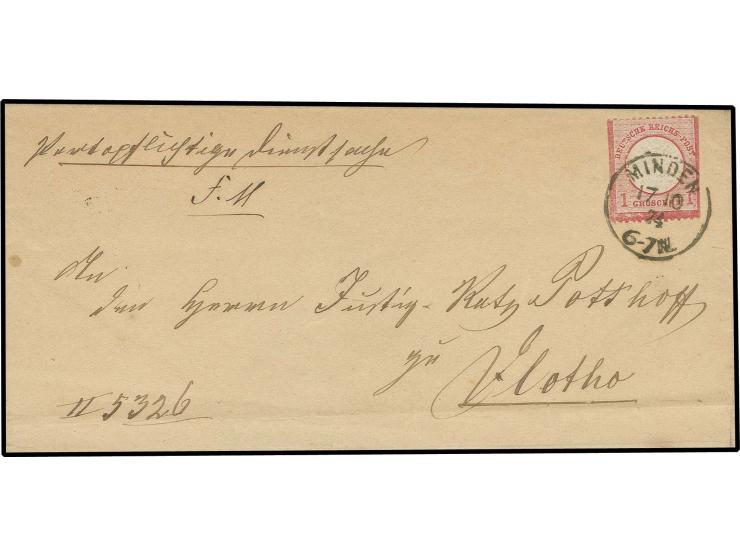 Portopflichtige Dienstsache
F. M
DEUTSCHE REICHS-POST
1 GROSCHEN 1
MINDEN
17 10
74
6-7 N.
An
den Herrn Justiz-Rath Potthoff
zu
Vlotho
II 5326